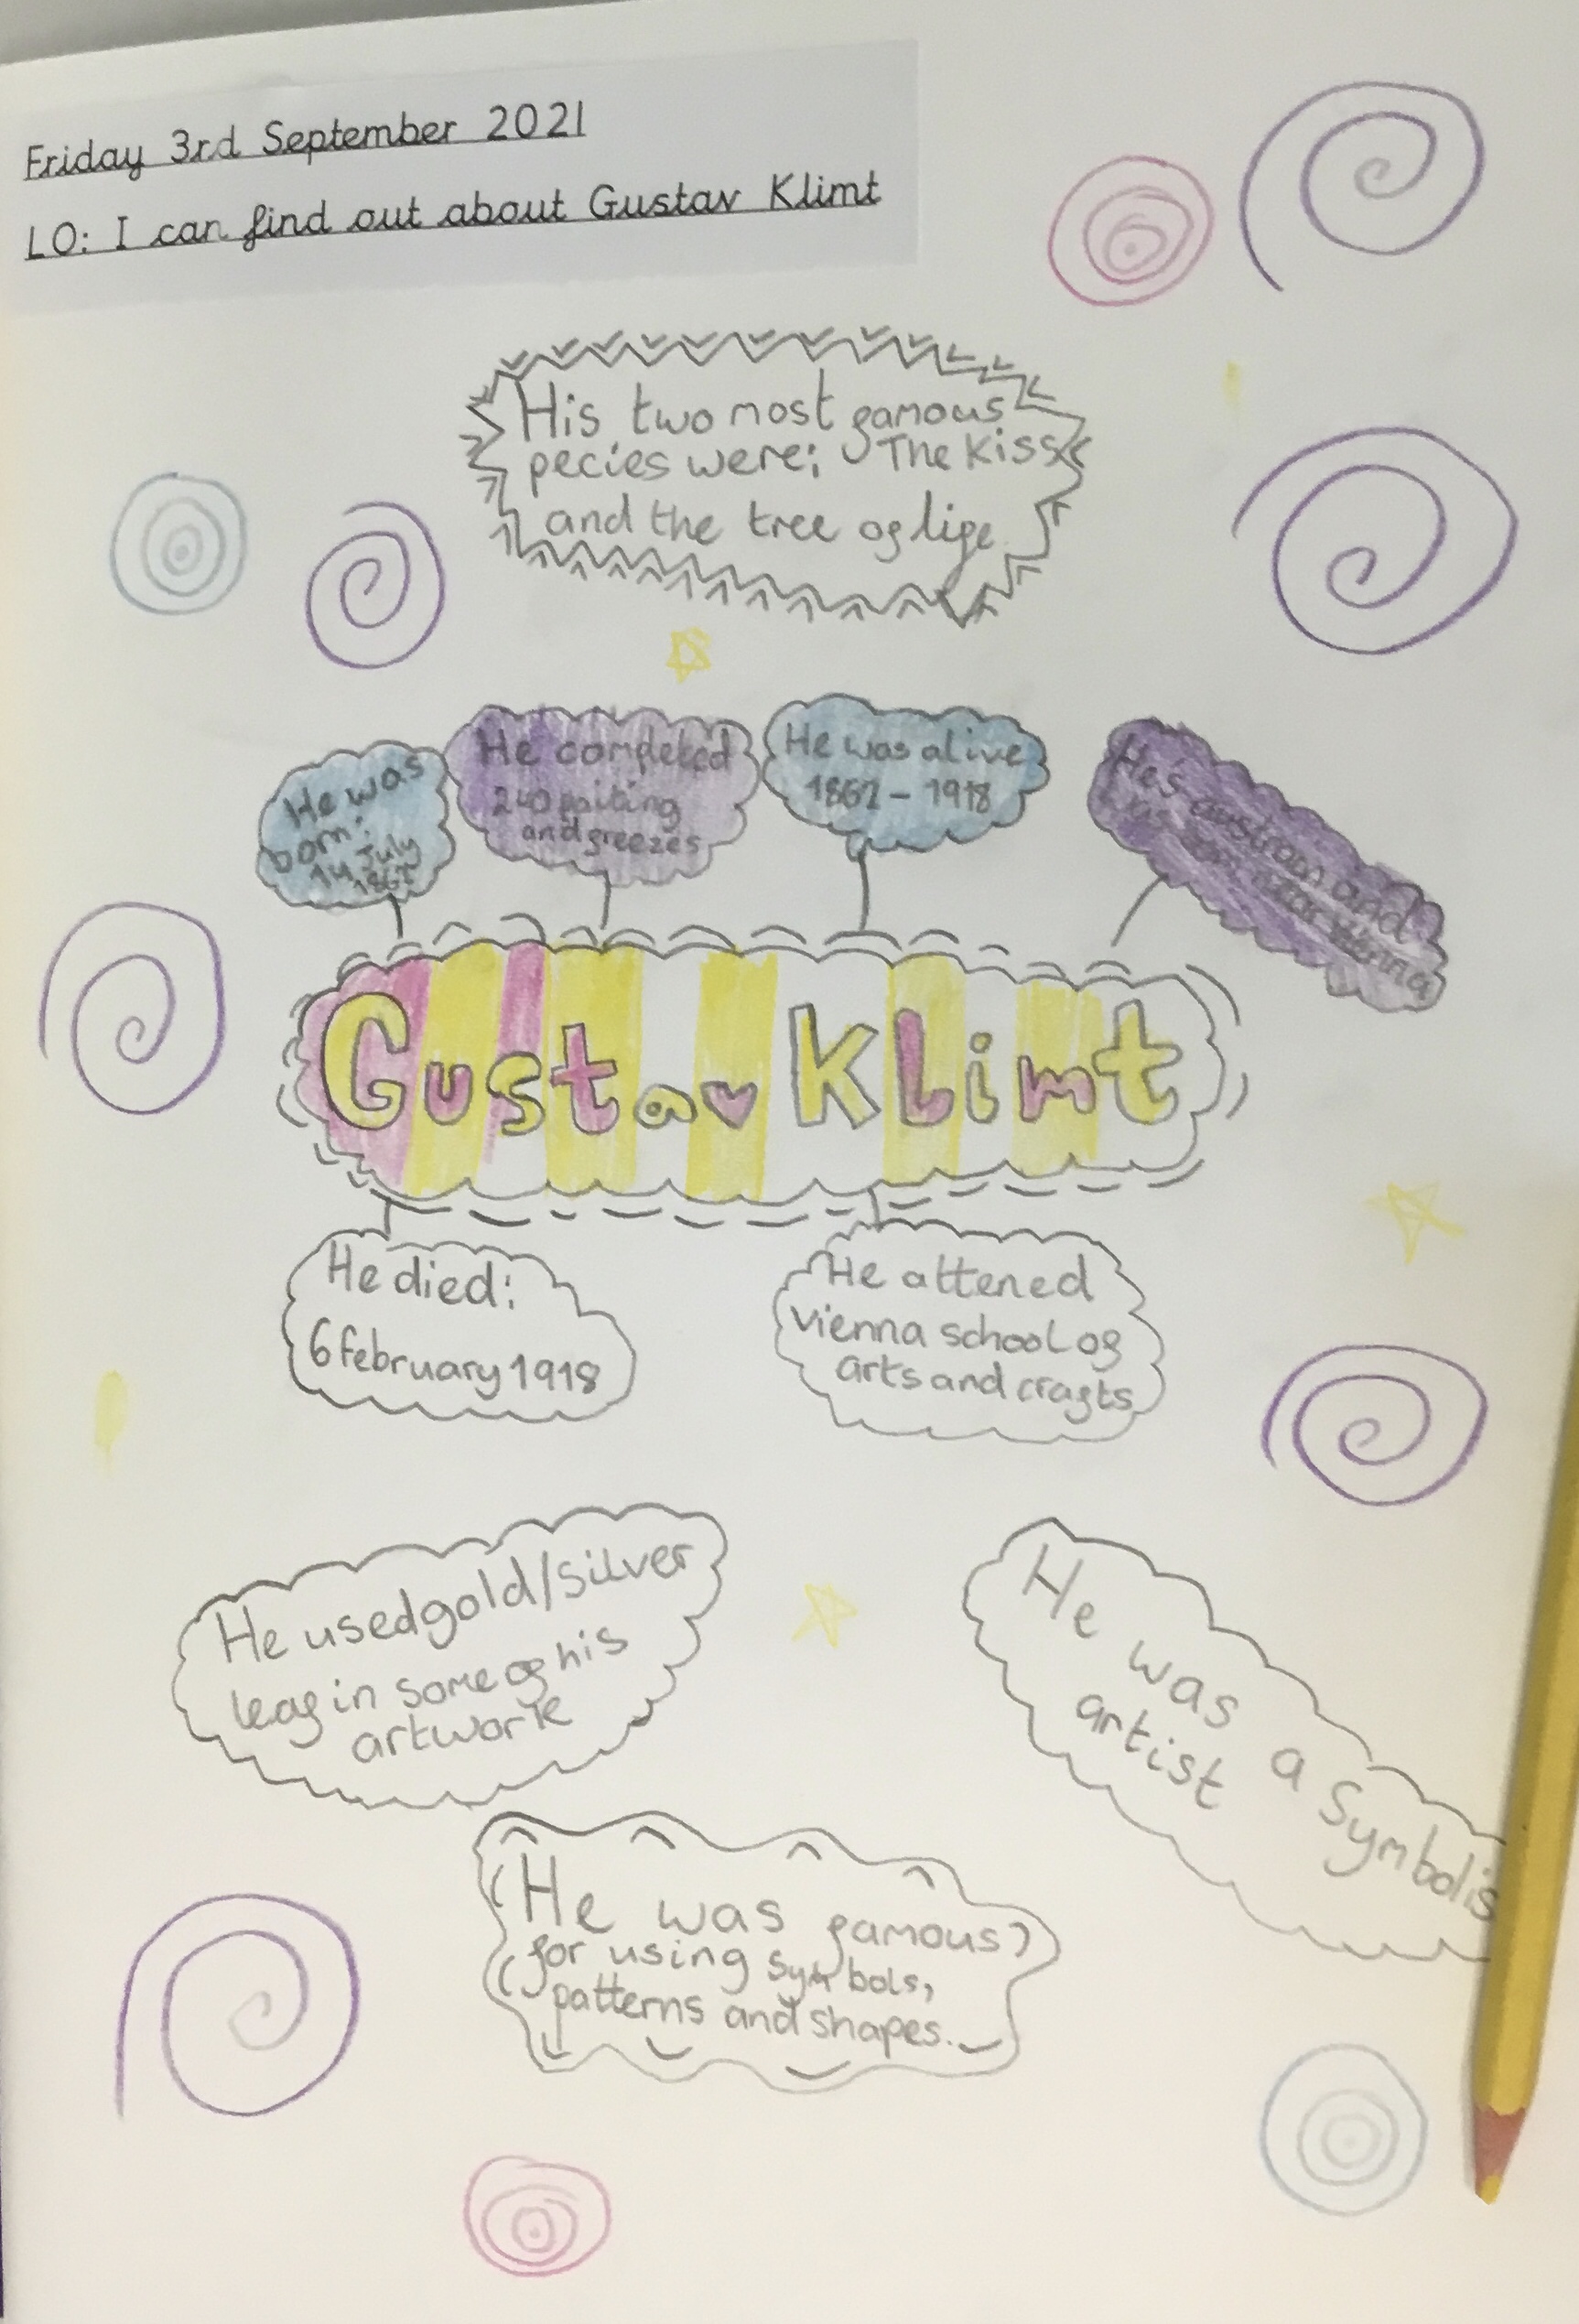 Friday 3rd September 2021
LO: I can find out about Gustav Klimt
His two most famous
pecies were; The Kiss
and the tree of life
He was
born:
14 July
1862
He completed
240 paiting
and freezes
He was alive
1862 - 1918
He's austrian and
was born near Vienna
Gustav Klimt
He died:
6 february 1918
He attened
vienna school of
arts and crafts
He used gold/silver
leaf in some of his
artwork
He was a Symbolis
artist
He was famous
for using symbols,
patterns and shapes.